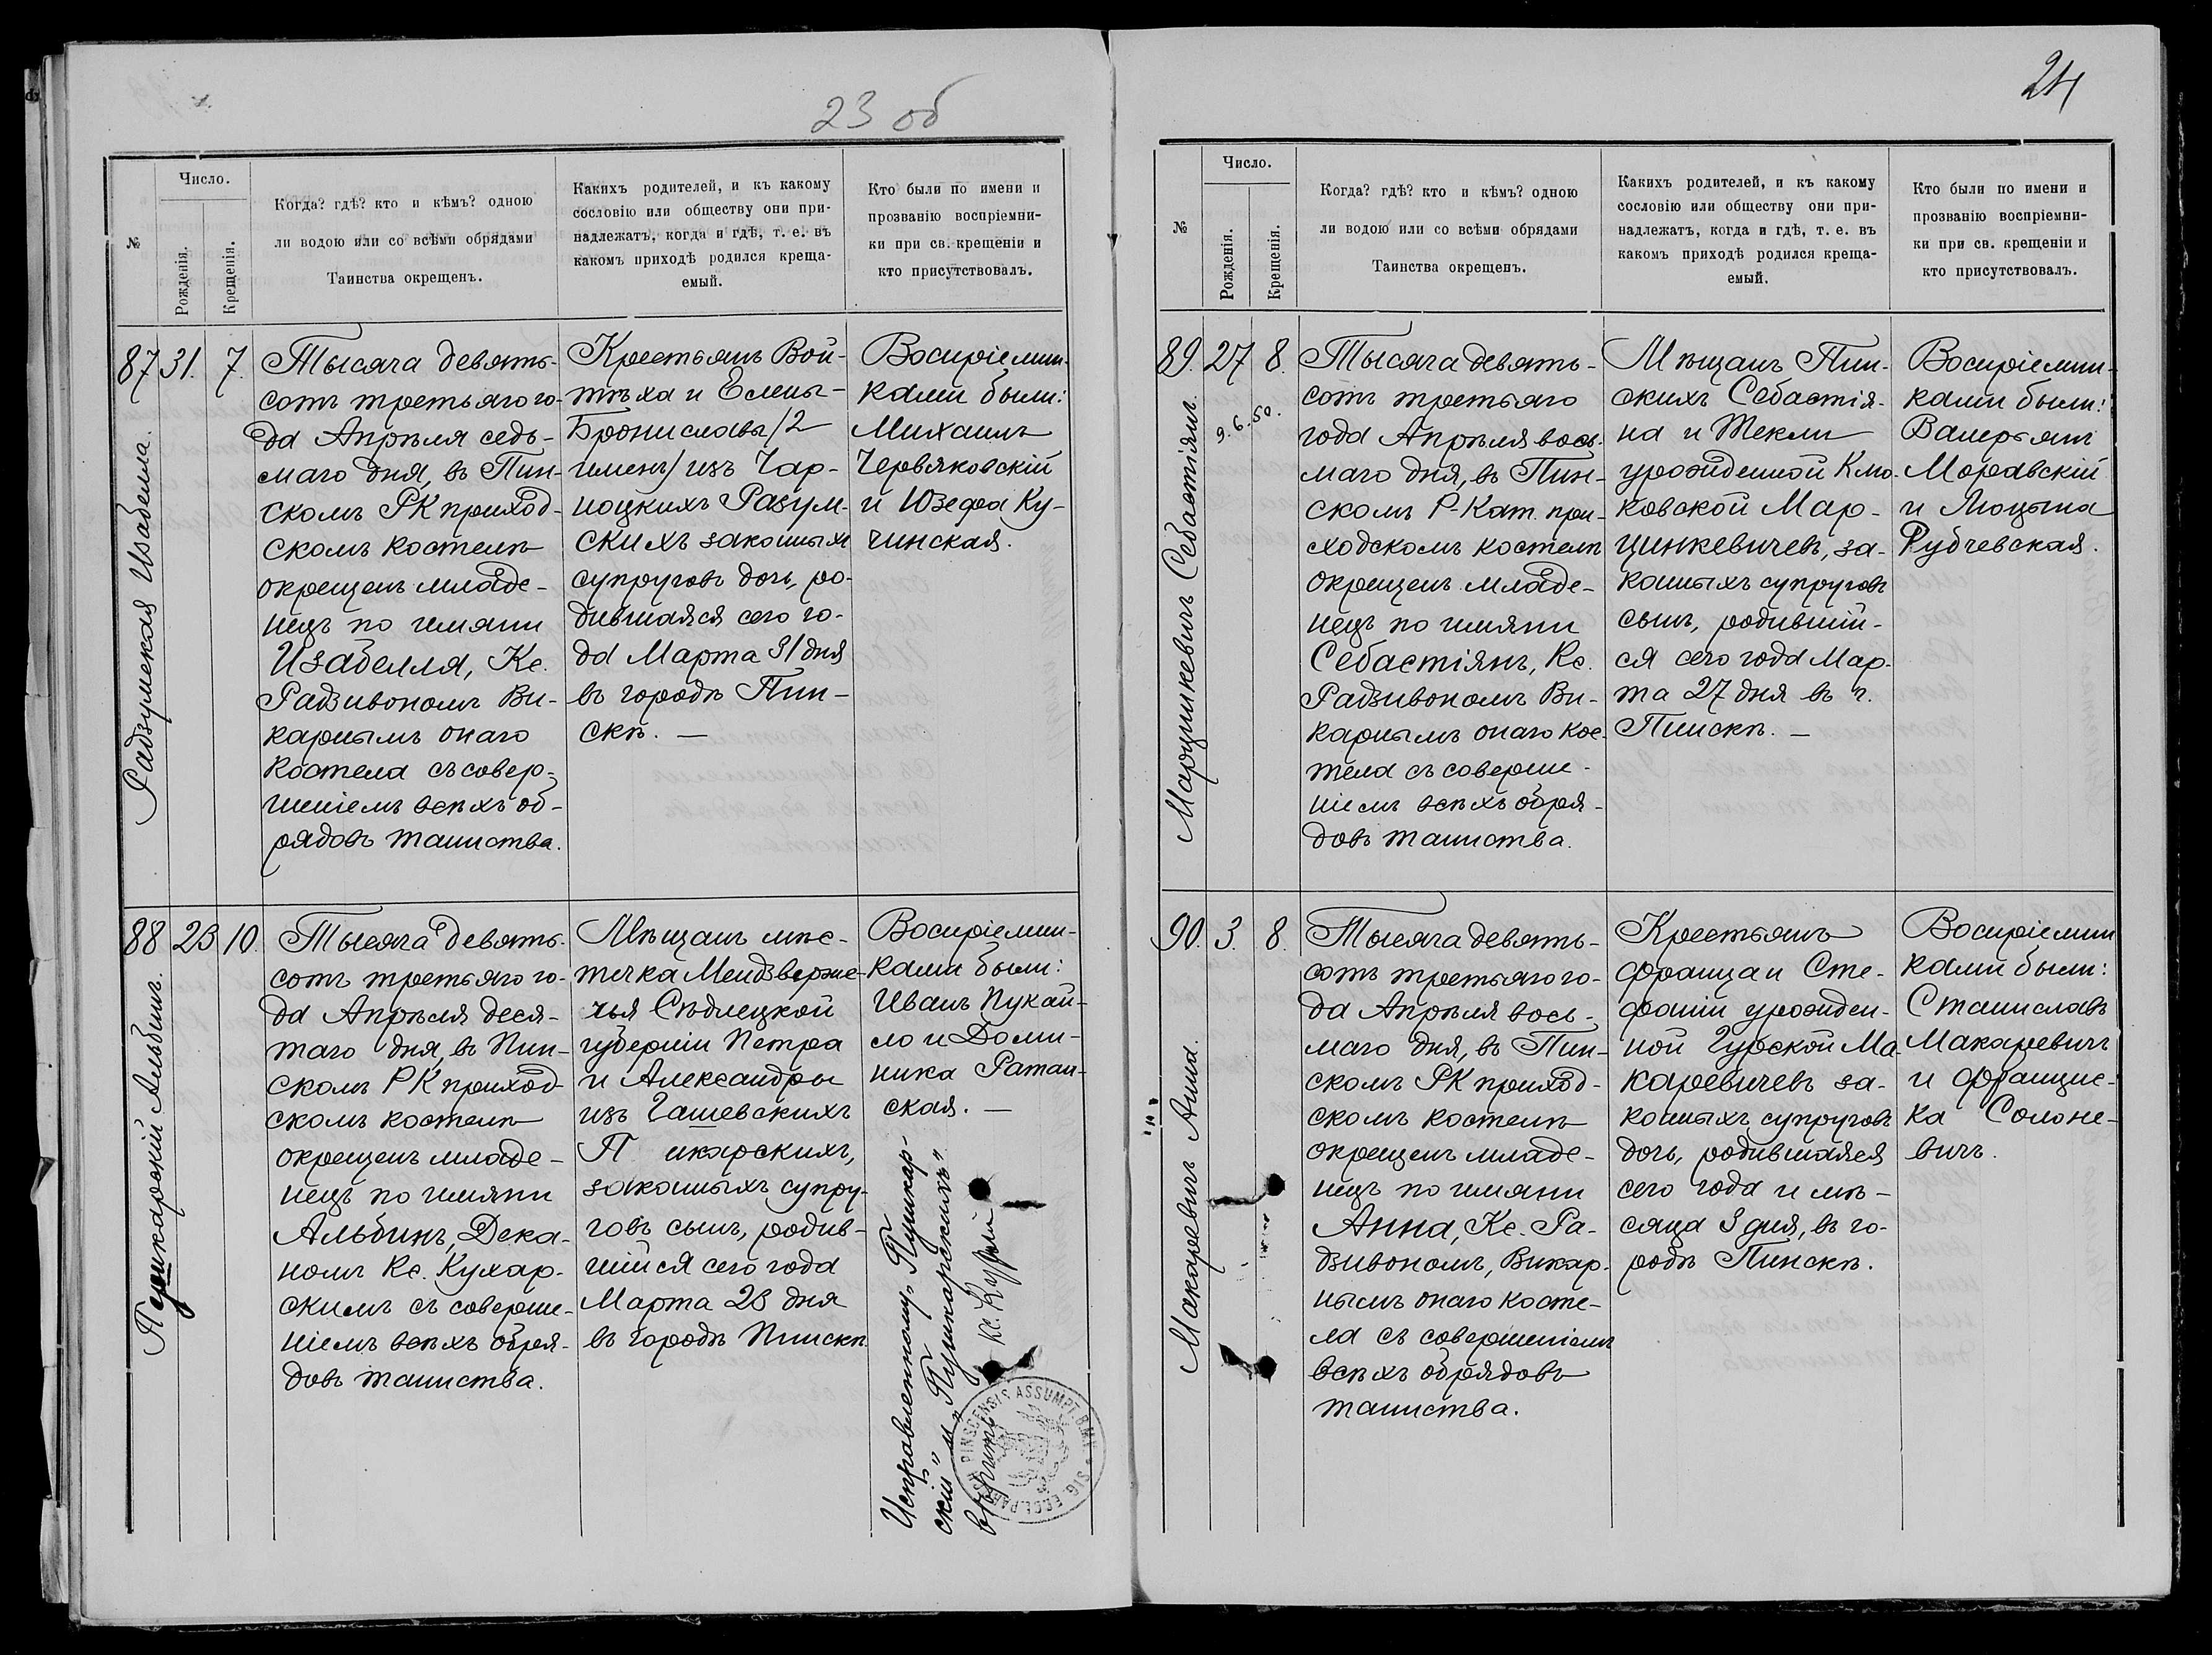 23 об
№
Число.
Рожденія.
Крещенія.
Когда? гдѣ? кто и кѣмъ? одною
ли водою или со всѣми обрядами
Таинства окрещенъ.
Какихъ родителей, и къ какому
сословію или обществу они при-
надлежатъ, когда и гдѣ, т. е. въ
какомъ приходѣ родился креща-
емый.
Кто были по имени и
прозванію воспріемни-
ки при св. крещеніи и
кто присутствовалъ.
87
31.
7.
Радзумская Изабелла.
Тысяча девять-
сотъ третьяго го-
да Апрѣля седь-
маго дня, въ Пин-
скомъ РК приход-
скомъ костелѣ
окрещенъ младе-
нецъ по имяни
Изабелля, Кс.
Радзивономъ Ви-
карнымъ онаго
костела съ совер-
шеніемъ всѣхъ об-
рядовъ таинства.
Крестьянъ Вой-
тѣха и Елены-
Брониславы /2
именъ/ изъ Чар-
ноцкихъ Разум-
скихъ законныхъ
супруговъ дочь, ро-
дившаяся сего го-
да Марта 31 дня
въ городѣ Пин-
скѣ. —
Воспріемни-
ками были:
Михаилъ
Червяковскій
и Юзефа Ку-
чинская.
88
23
10.
Пушкарскій Альбинъ.
Тысяча девять-
сотъ третьяго го-
да Апрѣля деся-
таго дня, въ Пин-
скомъ РК приход-
скомъ костелѣ
окрещенъ младе-
нецъ по имяни
Альбинъ, Дека-
номъ Кс. Кухар-
скимъ съ соверше-
ніемъ всѣхъ обря-
довъ таинства.
Мѣщанъ мѣс-
течка Мендзверже-
чья Сѣдлецкой
губерніи Петра
и Александры
изъ Гашевскихъ
П икарскихъ,
законныхъ супру-
говъ сынъ, родив-
шійся сего года
Марта 23 дня
въ городѣ Пинскѣ
Воспріемни-
ками были:
Иванъ Пукай-
ло и Доми-
ника Ратай-
ская. —
Исправленному „Пушкар-
скій" и „Пушкарскихъ"
вѣрить
Кс.
PINSCENSIS ASSUMPT. B.M.V. * SIG. ECCL. PAROCH
24
№
Число.
Рожденія.
Крещенія.
Когда? гдѣ? кто и кѣмъ? одною
ли водою или со всѣми обрядами
Таинства окрещенъ.
Какихъ родителей, и къ какому
сословію или обществу они при-
надлежатъ, когда и гдѣ, т. е. въ
какомъ приходѣ родился креща-
емый.
Кто были по имени и
прозванію воспріемни-
ки при св. крещеніи и
кто присутствовалъ.
89.
27
8.
9.6.50.
Марцинкевичъ Себастіянъ.
Тысяча девять-
сотъ третьяго
года Апрѣля вось-
маго дня, въ Пин-
скомъ Р-Кат. при-
ходскомъ костелѣ
окрещенъ младе-
нецъ по имяни
Себастіянъ, Кс.
Радзивономъ Ви-
карнымъ онаго кос-
тела съ соверше-
ніемъ всѣхъ обря-
довъ таинства.
Мѣщанъ Пин-
скихъ Себастія-
на и Текли
урожденной Клю-
ковской Мар-
цинкевичевъ, за-
конныхъ супруговъ
сынъ, родившій-
ся сего года Мар-
та 27 дня въ г.
Пинскѣ. —
Воспріемни-
ками были:
Валерьянъ
Моравскій
и Люцына
Рубчевская.
90.
3.
8.
Макаревичъ Анна.
"н"
Тысяча девять-
сотъ третьяго го-
да Апрѣля вось-
маго дня, въ Пин-
скомъ РК приход-
скомъ костелѣ
окрещенъ младе-
нецъ по имяни
Анна, Кс. Ра-
дзивономъ, Викар-
нымъ онаго косте-
ла съ совершеніемъ
всѣхъ обрядовъ
таинства.
Крестьянъ
Франца и Сте-
фаніи урожден-
ной Гурской Ма-
каревичевъ за-
конныхъ супруговъ
дочь, родившаяся
сего года и мѣ-
сяца 3 дня, въ го-
родѣ Пинскѣ.
Воспріемни
ками были:
Станиславъ
Макаревичъ
и Францис-
ка Солоне-
вичъ.